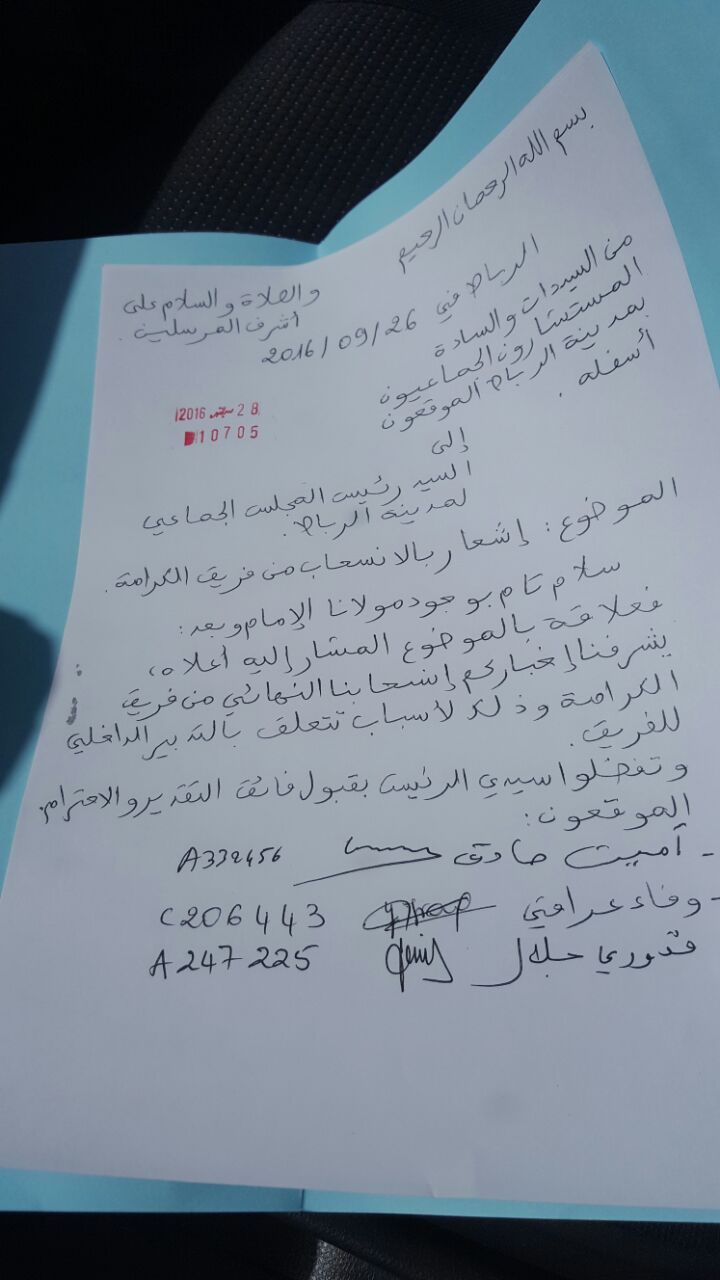 بسم الله الرحمان الرحيم
والصلاة والسلام على
أشرف المرسلين.
الرباط في 2016/09/26
من السيدات والسادة
المستشارون الجماعيون
بمدينة الرباط الموقعون
أسفله.
28 شتنبر 2016
10705
إلى
السيد رئيس المجلس الجماعي
لمدينة الرباط.
الموضوع: إشعار بالانسحاب من فريق الكرامة.
سلام تام بوجود مولانا الإمام وبعد:
فعلاقة بالموضوع المشار إليه أعلاه،
يشرفنا إخباركم إنسحابنا النهائي من فريق
الكرامة وذلك لأسباب تتعلق بالتدبير الداخلي
للفريق.
وتفضلوا سيدي الرئيس بقبول فائق التقدير والاحترام.
الموقعون:
- أمين صادق A332456
- وفاء عراقي C206443
قدوري جلال A247225